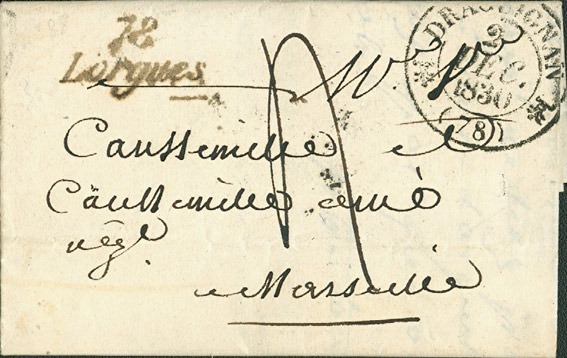 78
Lorgues
DRAGUIGNAN
3
DEC.
1830
(78)
Caussemille et
Caussemille ainé
négt
a Marseille